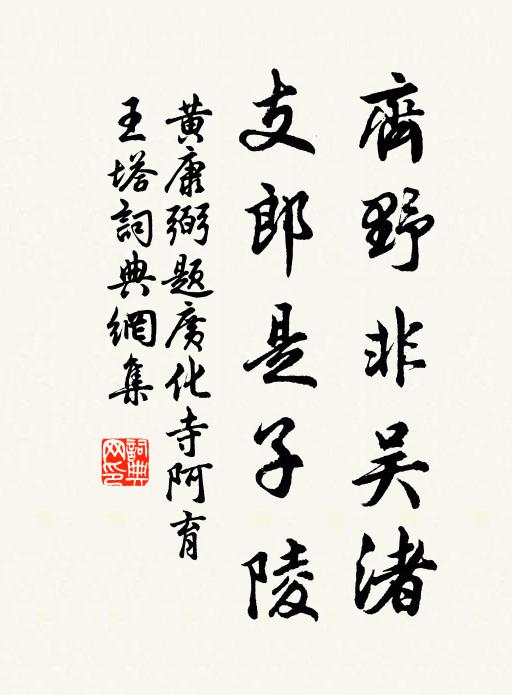 齊野非吴渚
支郎是子陵
黄康弼题廣化寺阿育
王塔詞典網集
詞典
网印